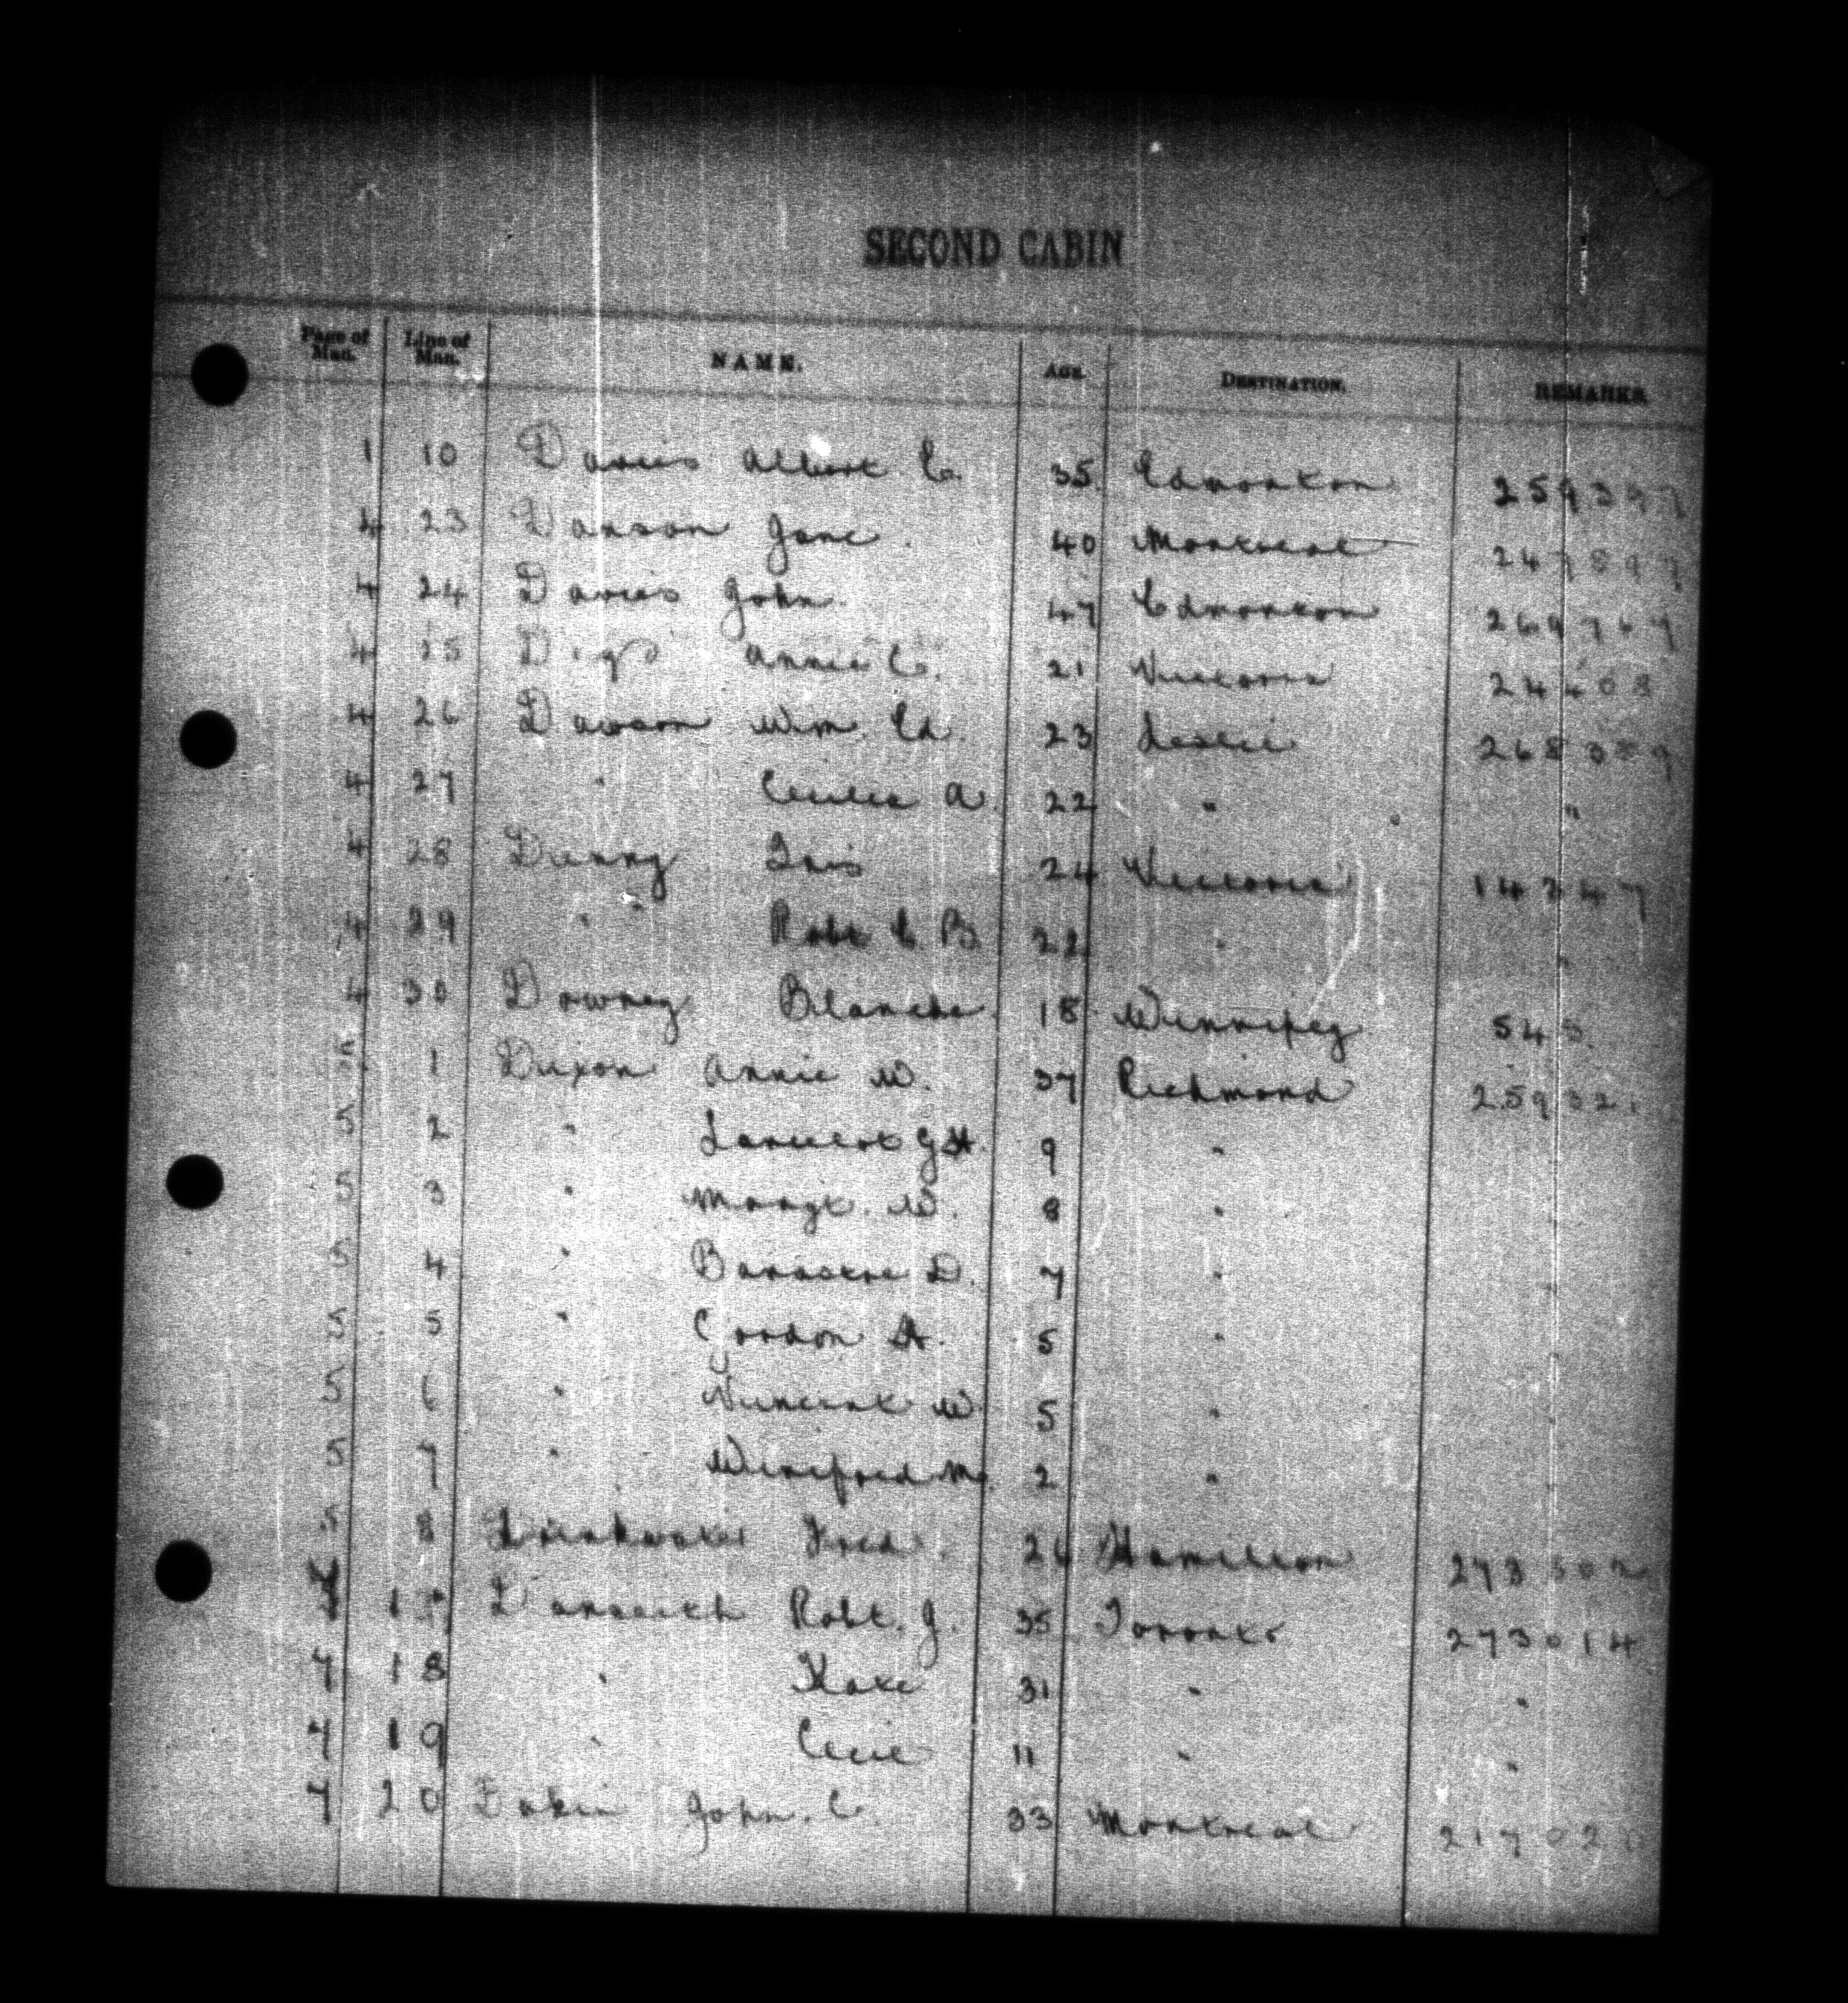 SECOND CABIN
Page of Man. Line of Man. NAME. AGE. DESTINATION. REMARKS.
1 10 Davies Albert C. 35 Edmonton 259397
4 23 Danson Jane. 40 Montreal
4 24 Davies John 47 Edmonton 269767
4 25 Annie C. 21 Victoria
4 26 Dawson Wm. Ed. 23 Leslie
4 27 " Cecilia A. 22 " "
4 28 Dunny Iris 24 Victoria 14247
4 29 " " Robt C B. 22 " "
4 30 Downey Blanche 18 Winnipeg
5 1 Dixon Annie W. 37 Richmond 259321
5 2 " Lancelot G H. 9 "
5 3 " Margt. W. 8 "
5 4 " D. 7 "
5 5 " Gordon H. 5 "
5 6 " Vincent W. 5 "
5 7 " Winifred M. 2 "
5 8 Drinkwater Fred. 26 Hamilton
7 17 Robt. J. 35 Toronto 273014
7 18 " Kate 31 " "
7 19 " Cecil 11 " "
7 20 Eakin John. C. 33 Montreal